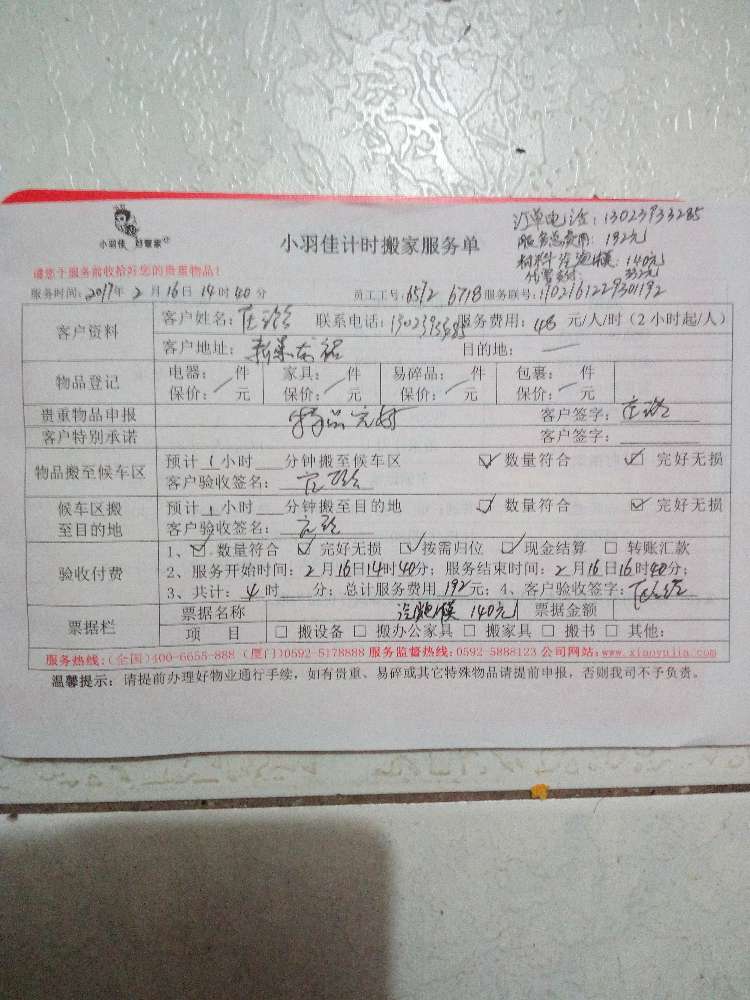 订单电话：13023933285
服务总费用：192元
材料汽泡膜：140元
332元
小羽佳 好管家
小羽佳计时搬家服务单
请您于服务前收拾好您的贵重物品！
服务时间：2017年 2 月 16 日 14 时 40 分 员工工号：6592 6718 服务联号：
客户资料
客户姓名： 联系电话： 服务费用：48 元/人/时（2小时起/人）
客户地址： 目的地：—
物品登记
电器： 件 家具： 件 易碎品： 件 包裹： 件
保价： 元 保价： 元 保价： 元 保价： 元
贵重物品申报 物品完好 客户签字：
客户特别承诺 客户签字：
物品搬至候车区
预计 1 小时 分钟搬至候车区 ☑ 数量符合 ☑ 完好无损
客户验收签名：
候车区搬至目的地
预计 1 小时 分钟搬至目的地 ☑ 数量符合 ☑ 完好无损
客户验收签名：
验收付费
1、☑ 数量符合 ☑ 完好无损 ☑ 按需归位 ☑ 现金结算 □ 转账汇款
2、服务开始时间：2月16日14时40分；服务结束时间：2月16日16时40分；
3、共计：4 时 分；总计服务费用 192 元；4、客户验收签字：
票据栏
票据名称 汽泡膜 140元 票据金额
项 目 □ 搬设备 □ 搬办公家具 □ 搬家具 □ 搬书 □ 其他：
服务热线：(全国)400-6655-888 (厦门)0592-5178888 服务监督热线：0592-5888123 公司网站：www.xiaoyujia.com
温馨提示：请提前办理好物业通行手续，如有贵重、易碎或其它特殊物品请提前申报，否则我司不予负责。